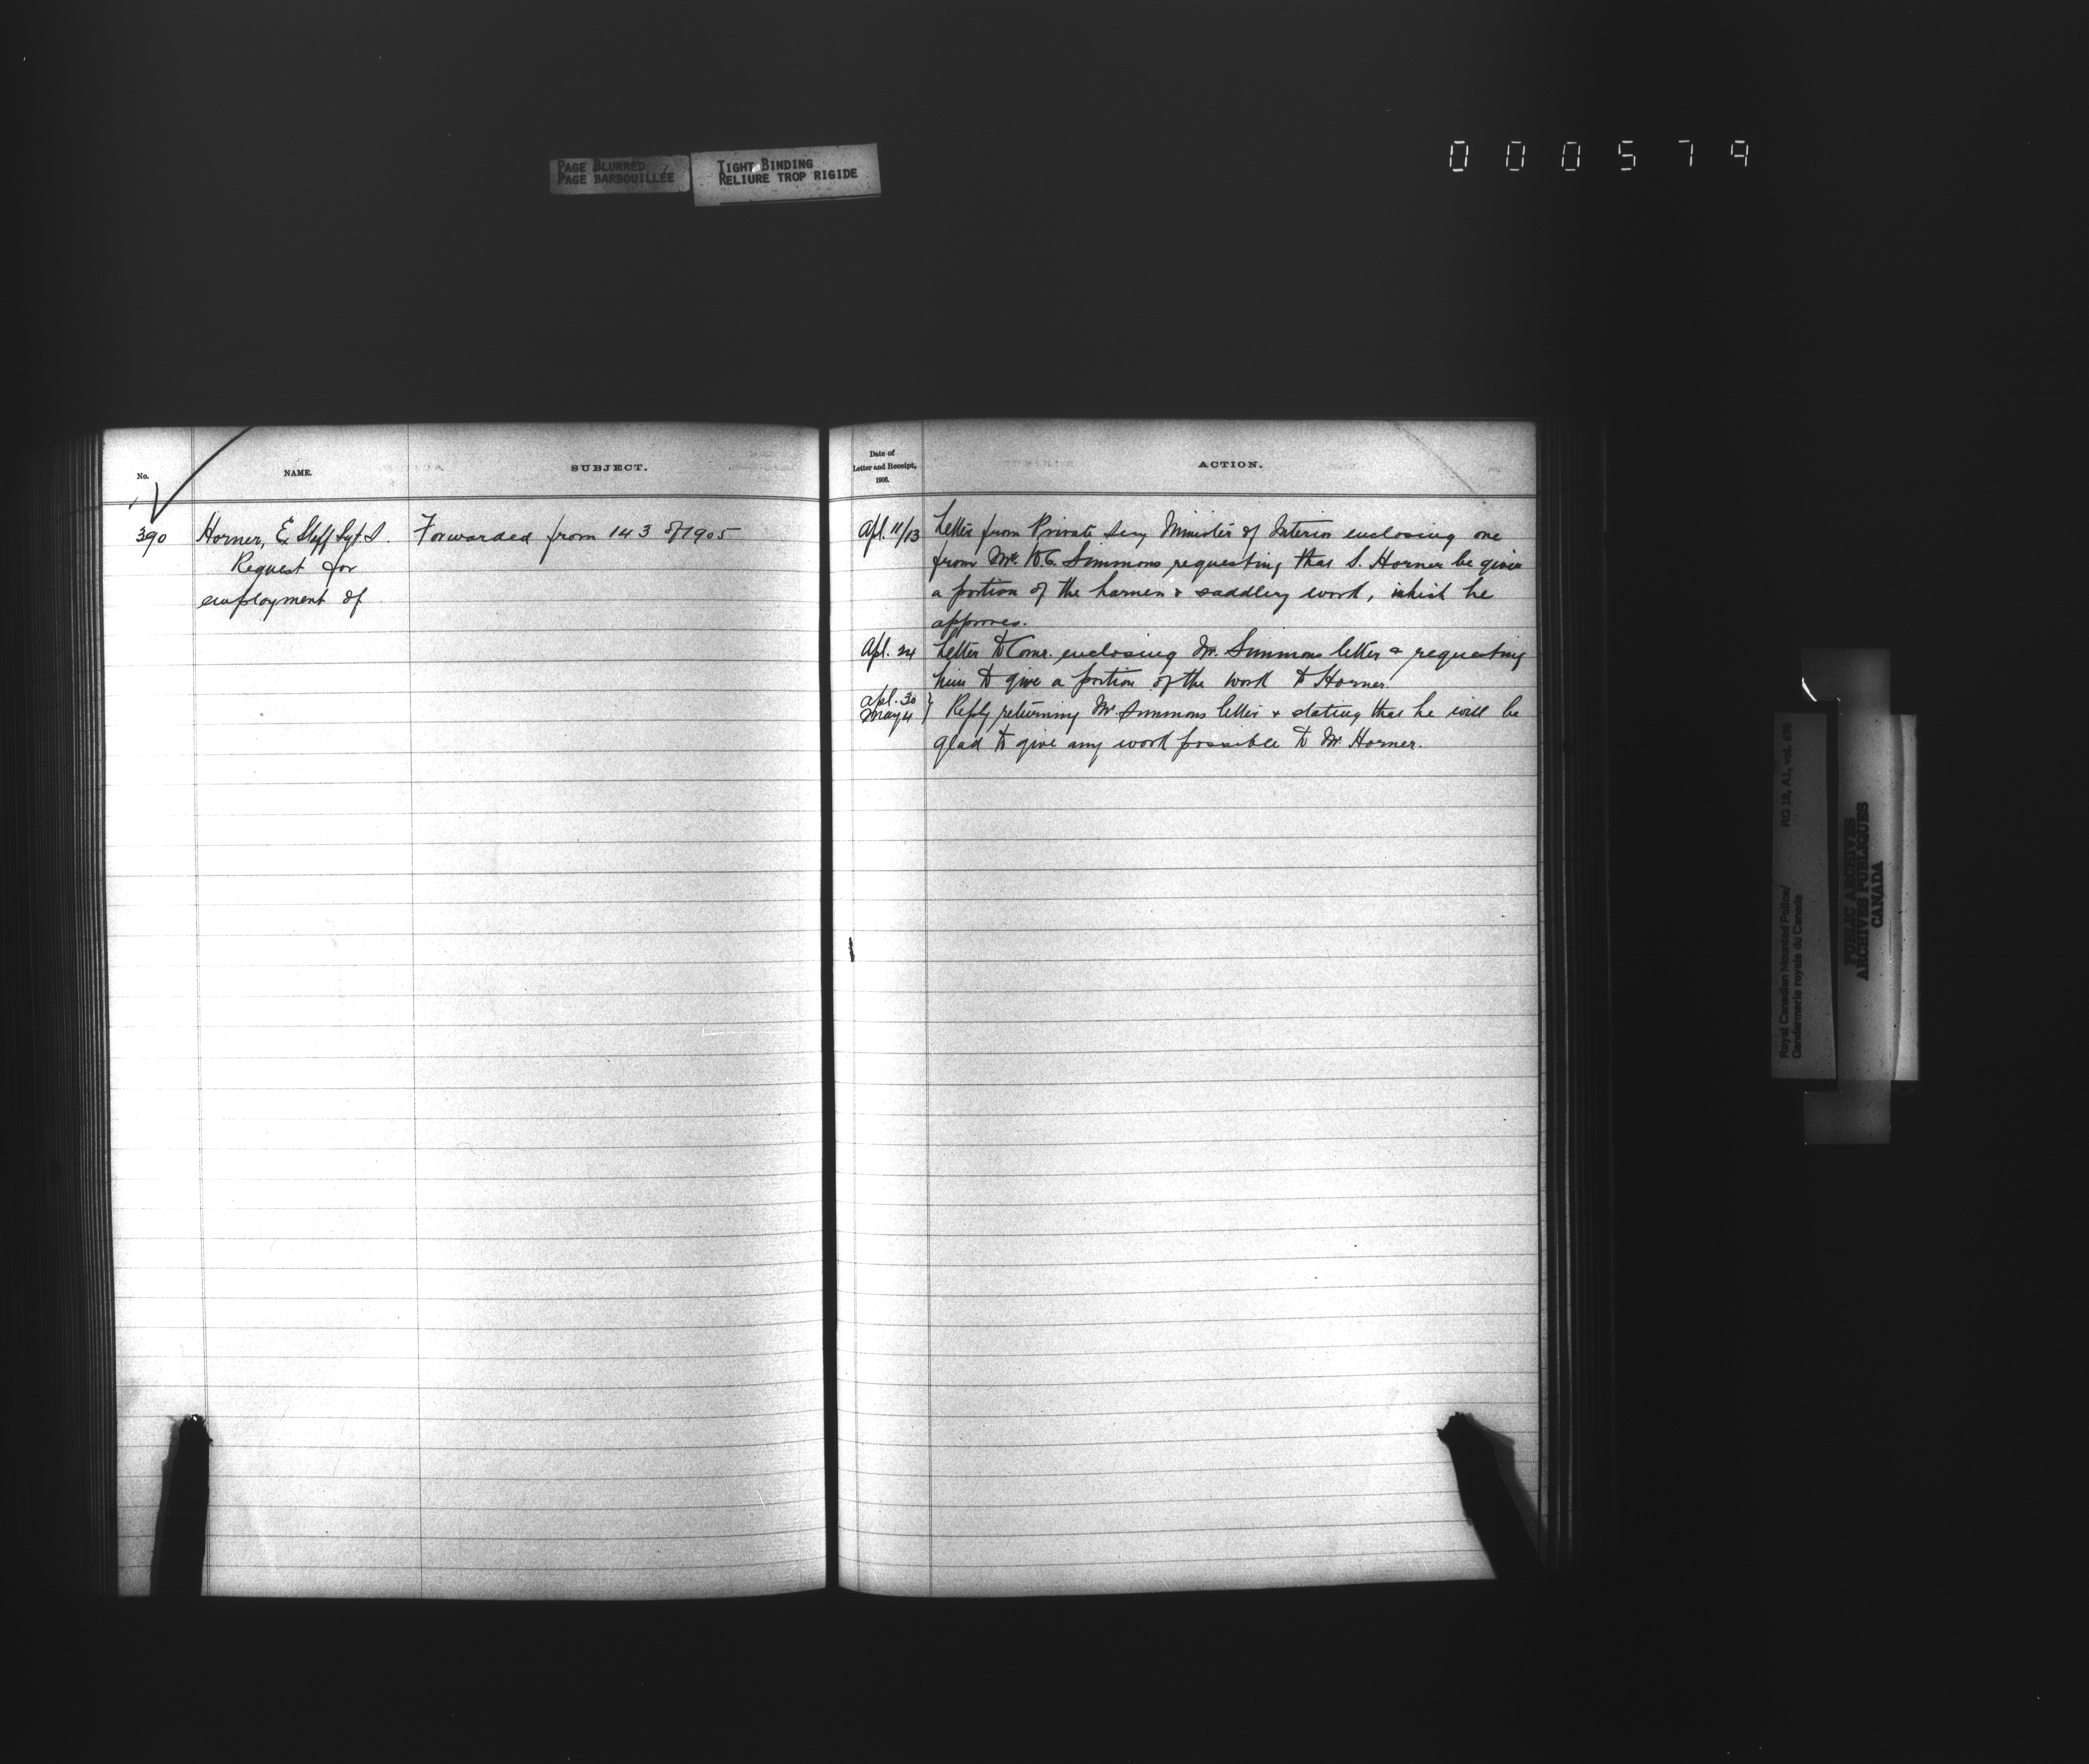 PAGE BLURRED
PAGE BARBOUILLÉE
TIGHT BINDING
RELIURE TROP RIGIDE
000579
No.
NAME.
SUBJECT.
390
Horner, Ex Staff Sgt. S.
Request for
employment of
Forwarded from 143 of 1905
Date of
Letter and Receipt,
1906.
ACTION.
Apl. 11/13
Letter from Private Secy Minister of Interior enclosing one
from Mr. Simmons requesting that S. Horner be given
a portion of the harness & saddlery work, which he
approves.
Apl. 24
Letter to Comr. enclosing Mr. Simmons letter & requesting
him to give a portion of the work to Horner.
Apl. 30
May 4
Reply returning Mr. Simmons letter & stating that he will be
glad to give any work possible to Mr. Horner.
Royal Canadian Mounted Police/
Gendarmerie royale du Canada
RG 18, A1, vol.
PUBLIC ARCHIVES
ARCHIVES PUBLIQUES
CANADA